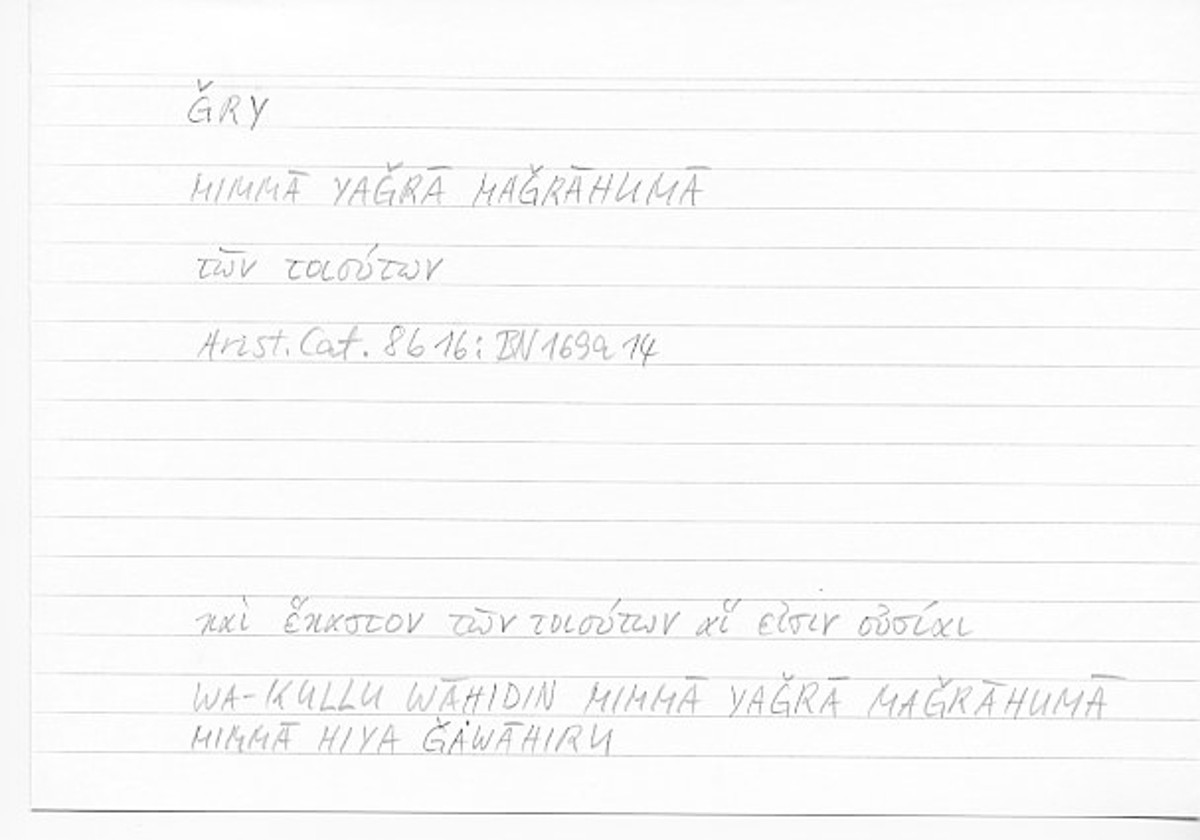 ǦRY
MIMMĀ YAǦRĀ MAǦRĀHUMĀ
τῶν τοιούτων
Arist. Cat. 8b16: BN 169a 14
καὶ ἕκαστον τῶν τοιούτων αἵ εἰσιν οὐσίαι
WA-KULLU WĀHIDIN MIMMĀ YAǦRĀ MAǦRĀHUMĀ
MIMMĀ HIYA ǦAWĀHIRU